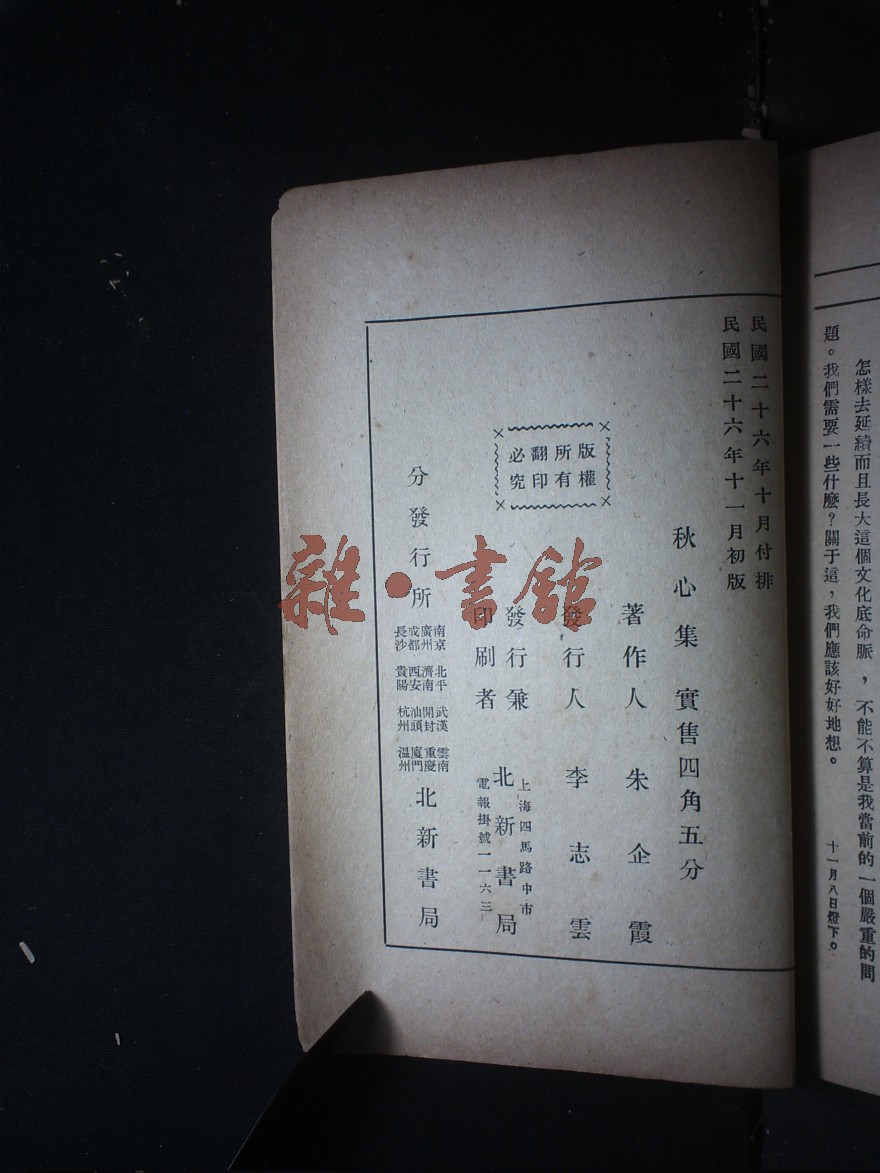 怎樣去延續而且長大這個文化底命脈，不能不算是我當前的一個嚴重的問
題。我們需要一些什麼？關于這，我們應該好好地想。
十一月八日燈下。
民國二十六年十月付排
民國二十六年十一月初版
秋心集 實售四角五分
著作人 朱企霞
版權
所有
翻印
必究
發行人 李志雲
發行兼
印刷者
上海四馬路中市
北新書局
電報掛號一一六三
分發行所
南京 北平 武漢 雲南
廣州 濟南 開封 重慶
成都 西安 汕頭 廈門
長沙 貴陽 杭州 溫州
北新書局
雜·書館